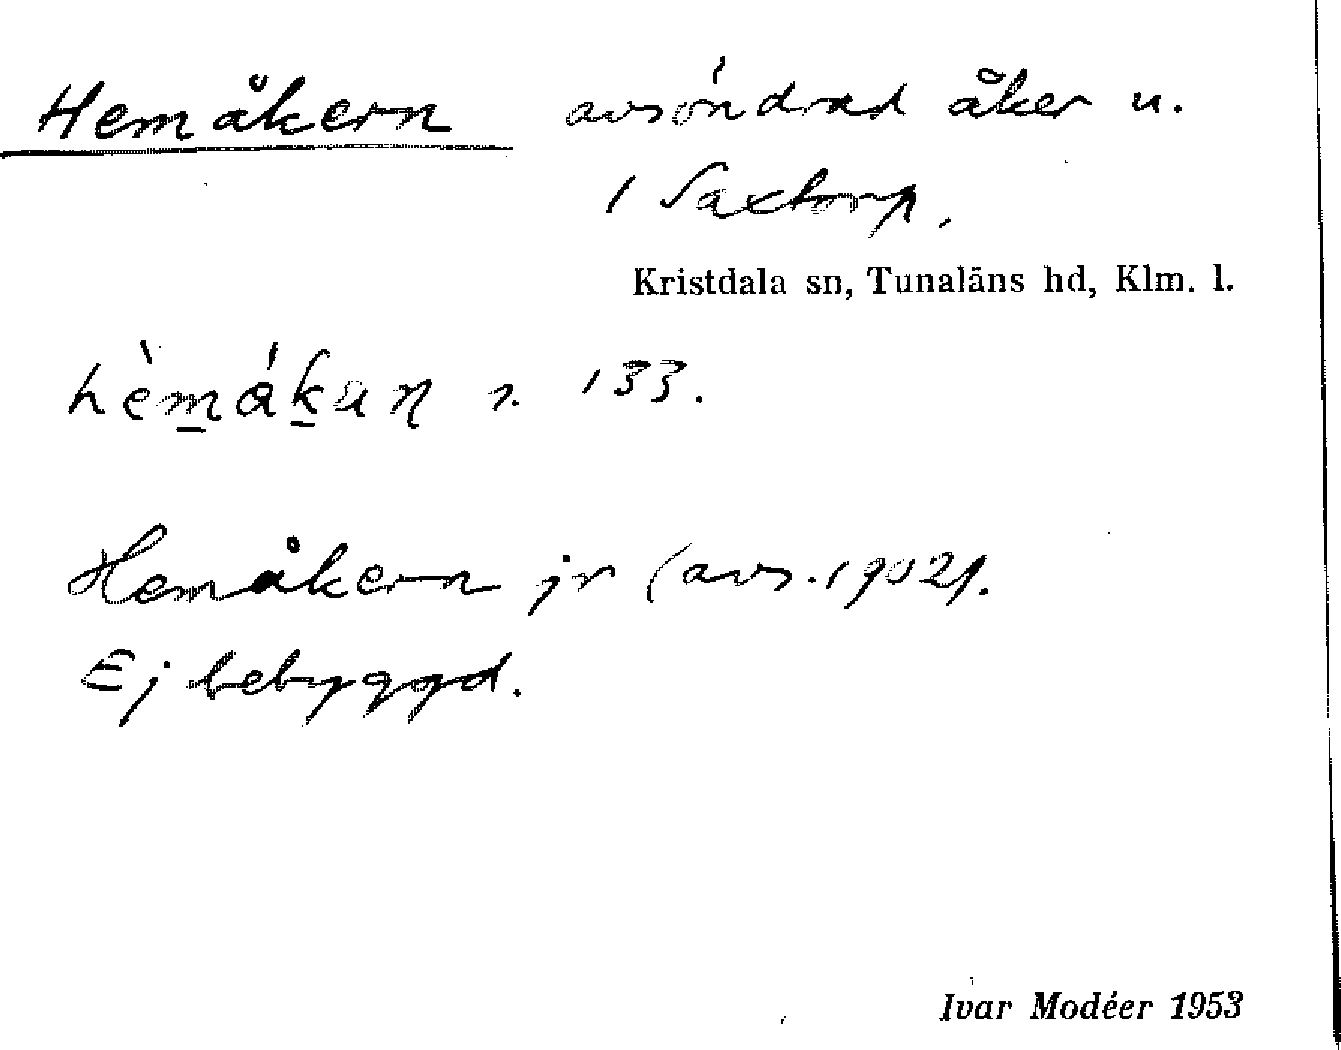 Hemåkern avsöndrad åker u.
1 Saxtorp.
Kristdala sn, Tunaläns hd, Klm. l.
s. 133.
Hemåkern jr (avs. 1902).
Ej bebyggd.
Ivar Modéer 1953